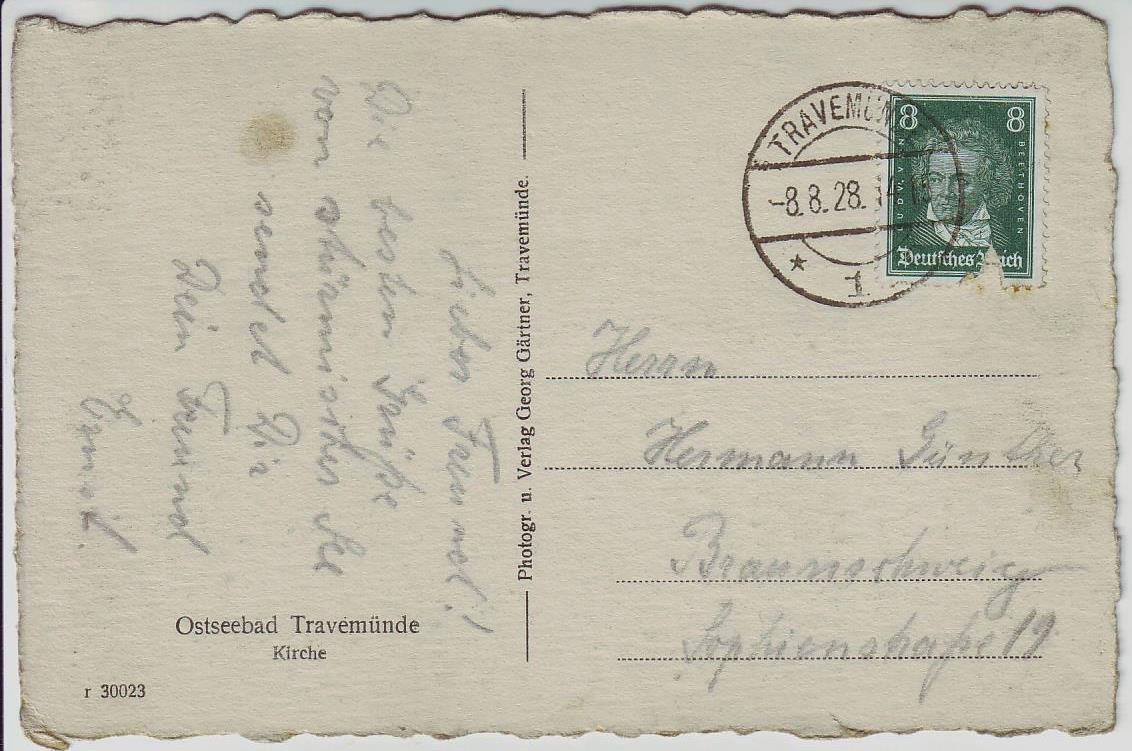 Lieber Freund!
Die besten Grüße
von stürmischer See
sendet Dir
Dein Freund
Photogr. u. Verlag Georg Gärtner, Travemünde.
TRAVEMÜN
-8.8.28. 14
1
8 8
LUDW. VAN
BEETHOVEN
Deutsches Reich
Herrn
Hermann Günther
Braunschweig
Sophienstraße 19
Ostseebad Travemünde
Kirche
r 30023